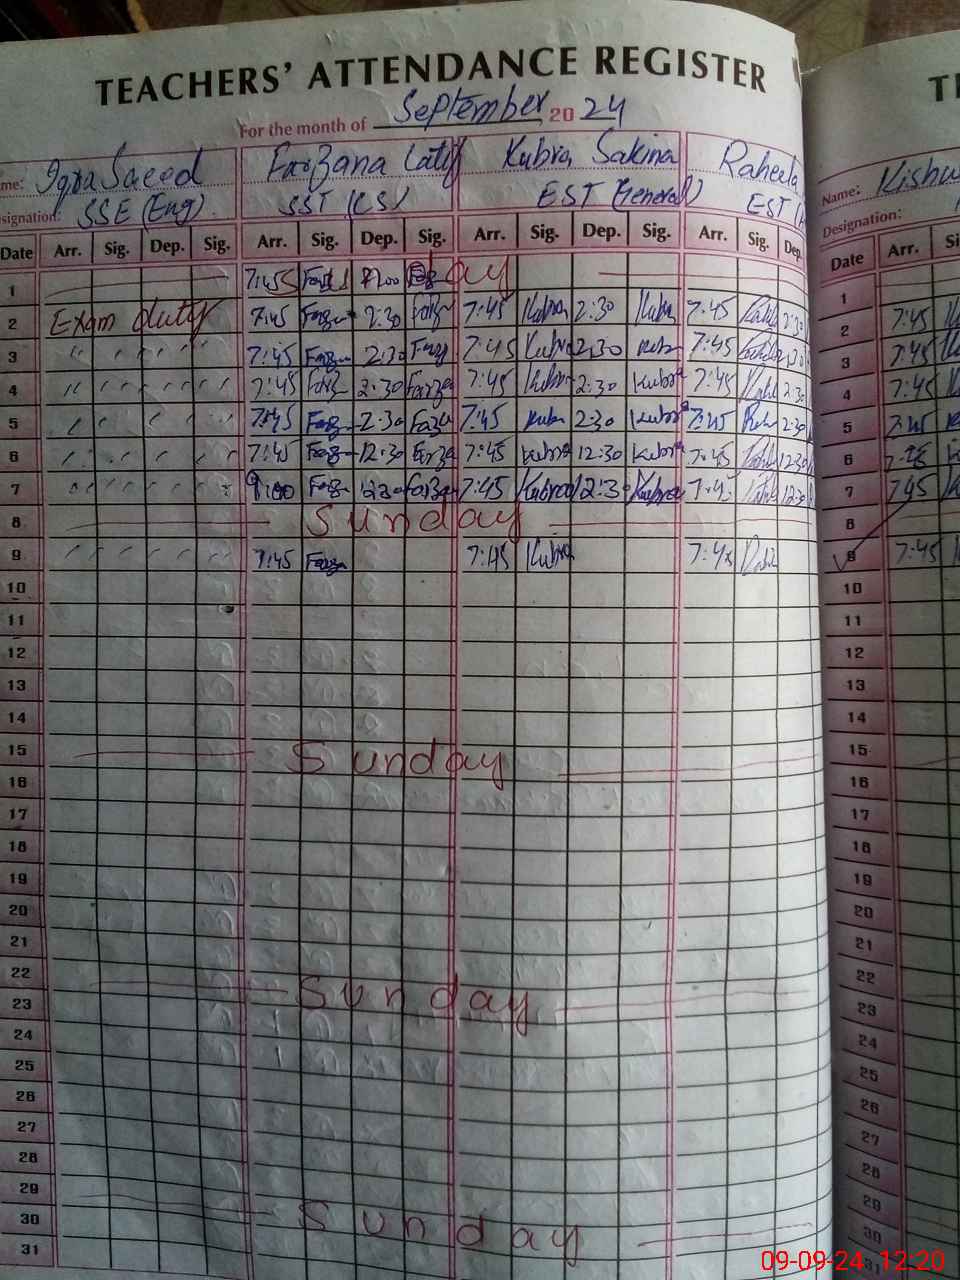 TEACHERS' ATTENDANCE REGISTER
For the month of September 2024
Iqra Saeed Farzana Latif Kubra Sakina Raheela
Name: Kishw
SSE (Eng) SST (CS) EST (General) EST
Designation:
Date Arr. Sig. Dep. Sig. Arr. Sig. Dep. Sig. Arr. Sig. Dep. Sig. Arr. Sig. Dep. Date Arr.
1 7:45 1
2 Exam duty 7:45 Farza 2:30 Farza 7:45 Kubra 2:30 Kubra 7:45 2:30 2 7:45
3 " 7:45 Farza 2:30 Farza 7:45 Kubra 2:30 Kubra 7:45 2:30 3 7:45
4 " 7:45 Farza 2:30 Farza 7:45 Kubra 2:30 Kubra 7:45 2:30 4 7:45
5 " 7:45 Farza 2:30 Farza 7:45 Kubra 2:30 Kubra 7:45 2:30 5 7:45
6 " 7:45 Farza 12:30 Farza 7:45 Kubra 12:30 Kubra 7:45 12:30 6 7:45
7 " 9:00 Farza 12:30 Farza 7:45 Kubra 12:30 Kubra 7:45 12:30 7 7:45
8 Sunday 8
9 " 7:45 Farza 7:45 Kubra 7:45 9 7:45
10 10
11 11
12 12
13 13
14 14
15 Sunday 15
16 16
17 17
18 18
19 19
20 20
21 21
22 Sunday 22
23 23
24 24
25 25
26 26
27 27
28 28
29 Sunday 29
30 30
31 31
09-09-24 12:20